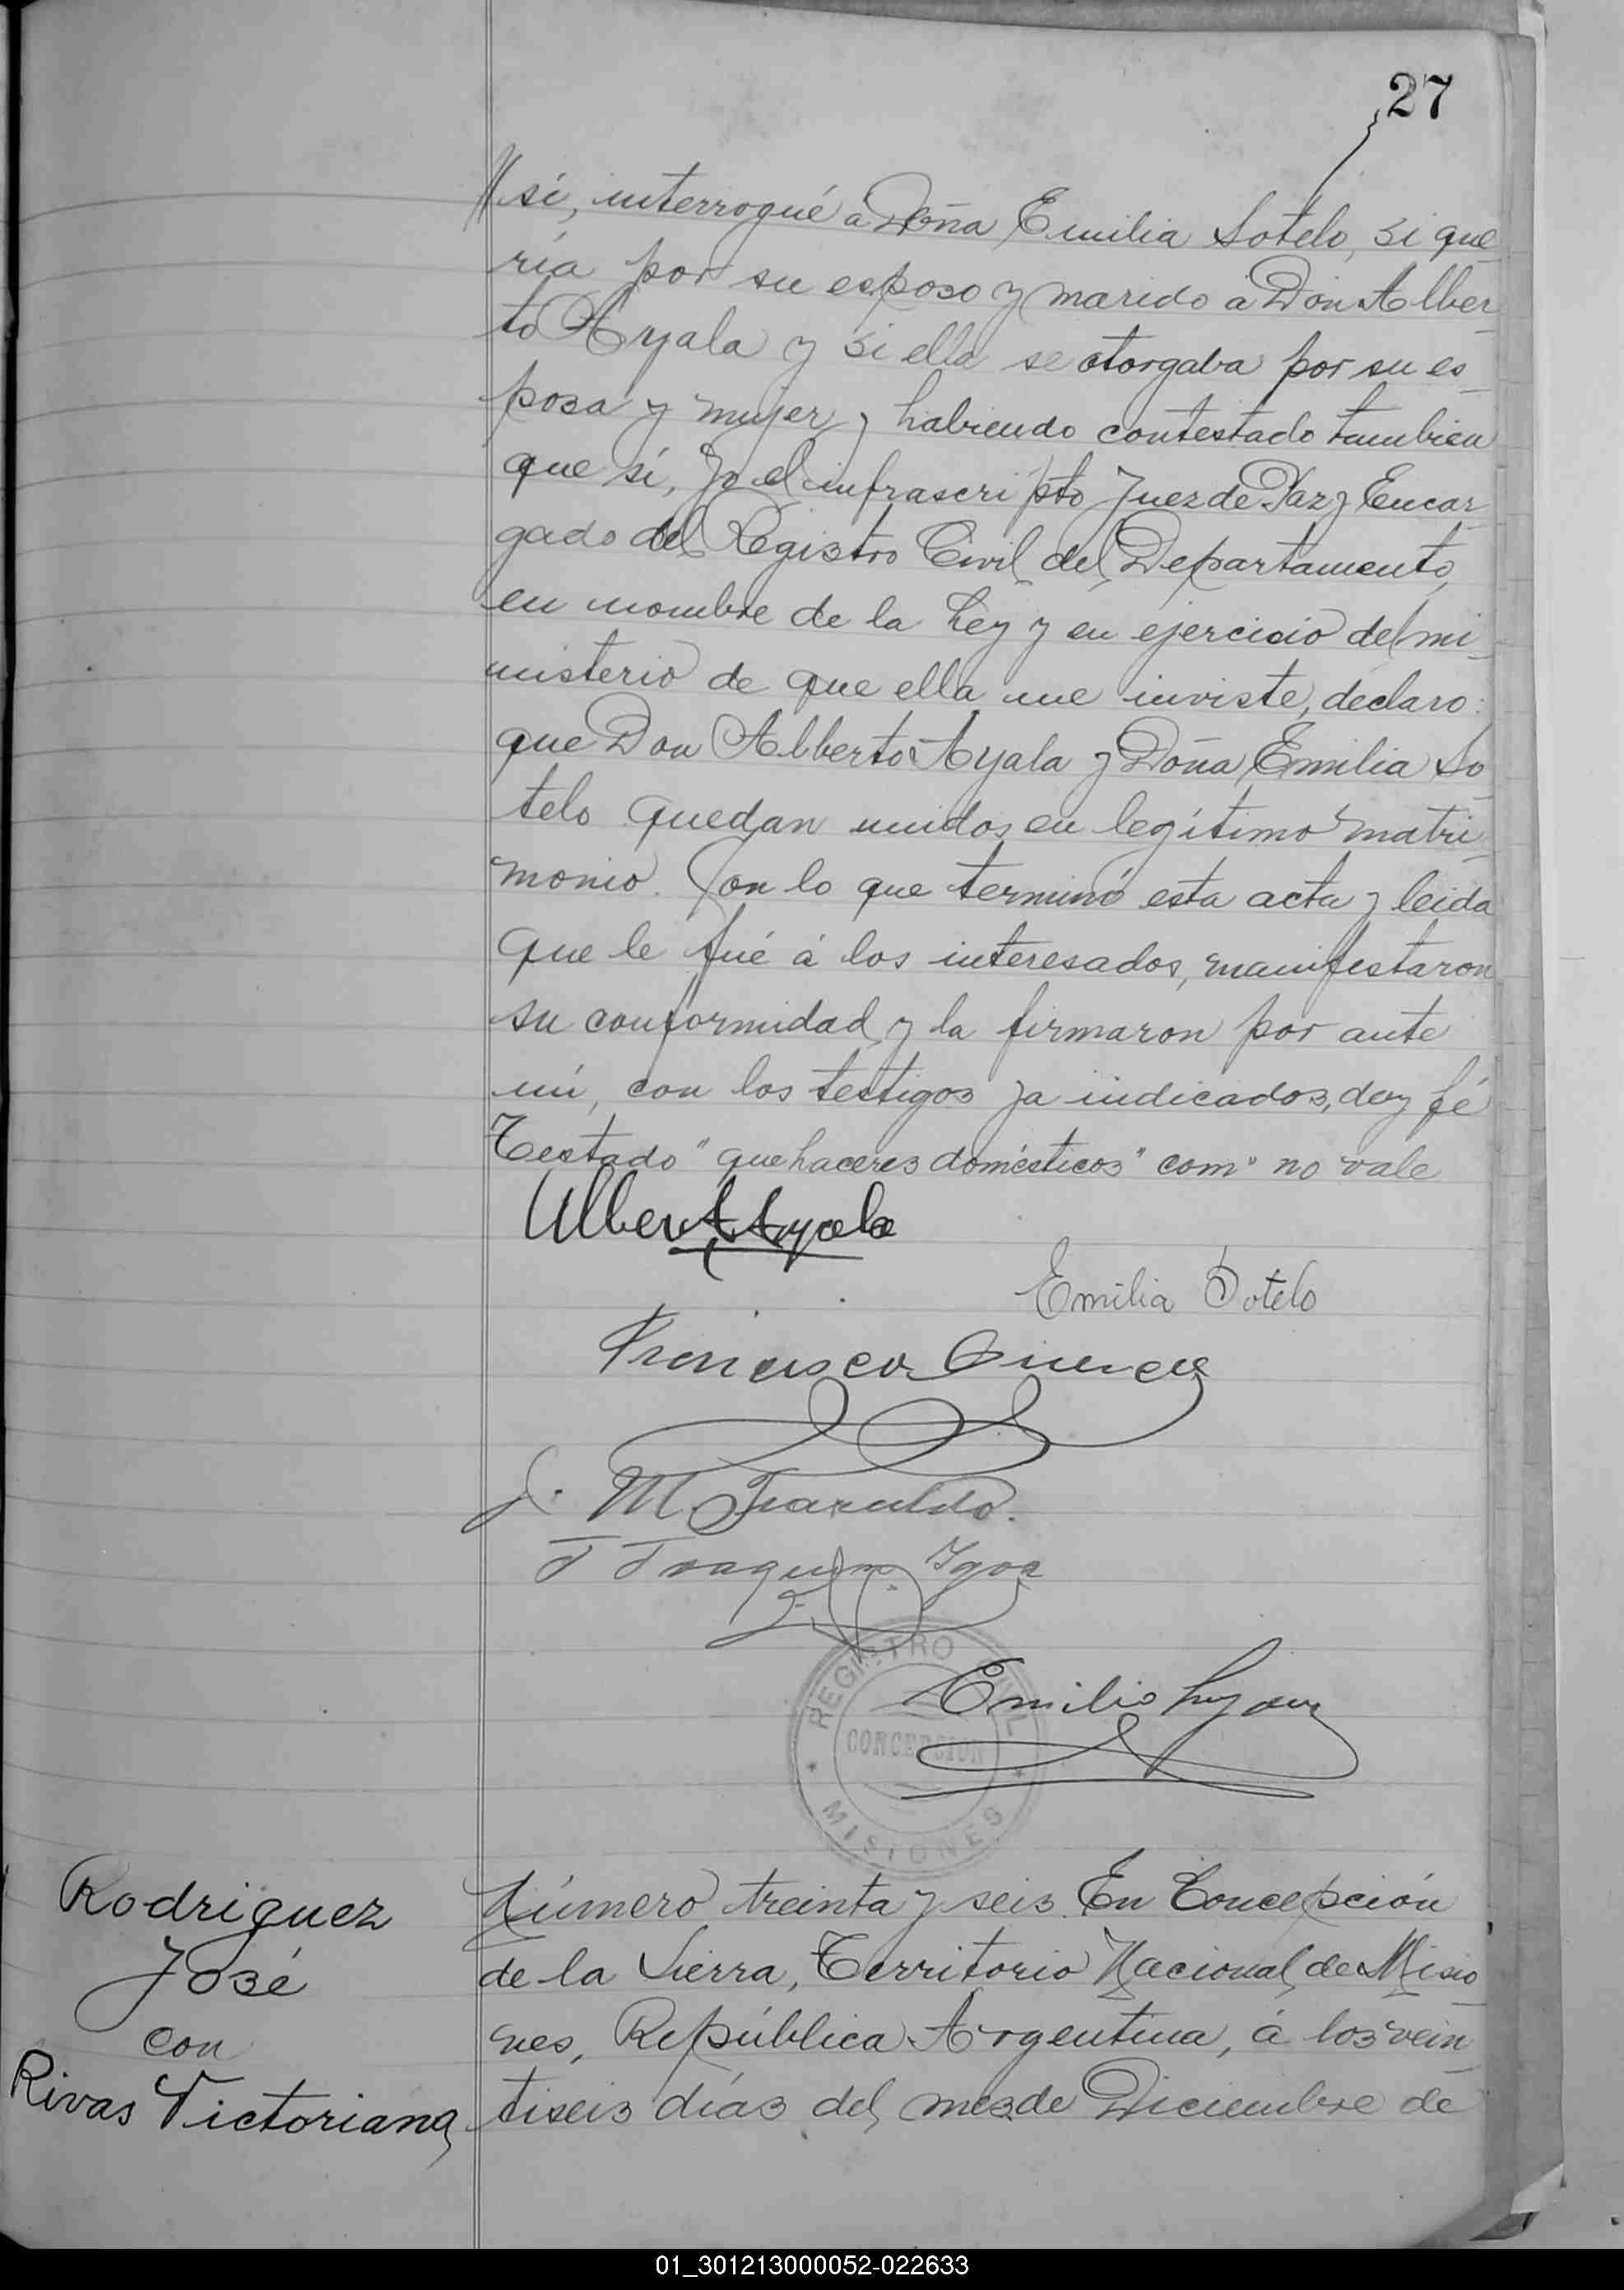 27
si, interrogué a Doña Emilia Sotelo, si que
ría por su esposo y marido a Don Alber
to Ayala y si ella se otorgaba por su es
posa y mujer, y habiendo contestado tambien
que sí, yo el infrascripto Juez de Paz y Encar
gado del Registro Civil del Departamento,
en nombre de la Ley y en ejercicio del mi
nisterio de que ella me inviste, declaro:
que Don Alberto Ayala y Doña Emilia So
telo quedan unidos en legítimo matri
monio. Con lo que terminó esta acta y leida
que le fué á los interesados, manifestaron
su conformidad y la firmaron por ante
mí, con los testigos ya indicados, doy fé
Testado "quehaceres domésticos" com no vale
Albert Ayala
Emilia Sotelo
Francisco
J. M.
Joaquin
REGISTRO CIVIL
Emilio
CONCEPCION
MISIONES
Rodriguez
José
con
Rivas Victoriana
Número treinta y seis. En Concepción
de la Sierra, Territorio Nacional de Misio
nes, República Argentina, á los vein
tiseis días del mes de Diciembre de
01_301213000052-022633